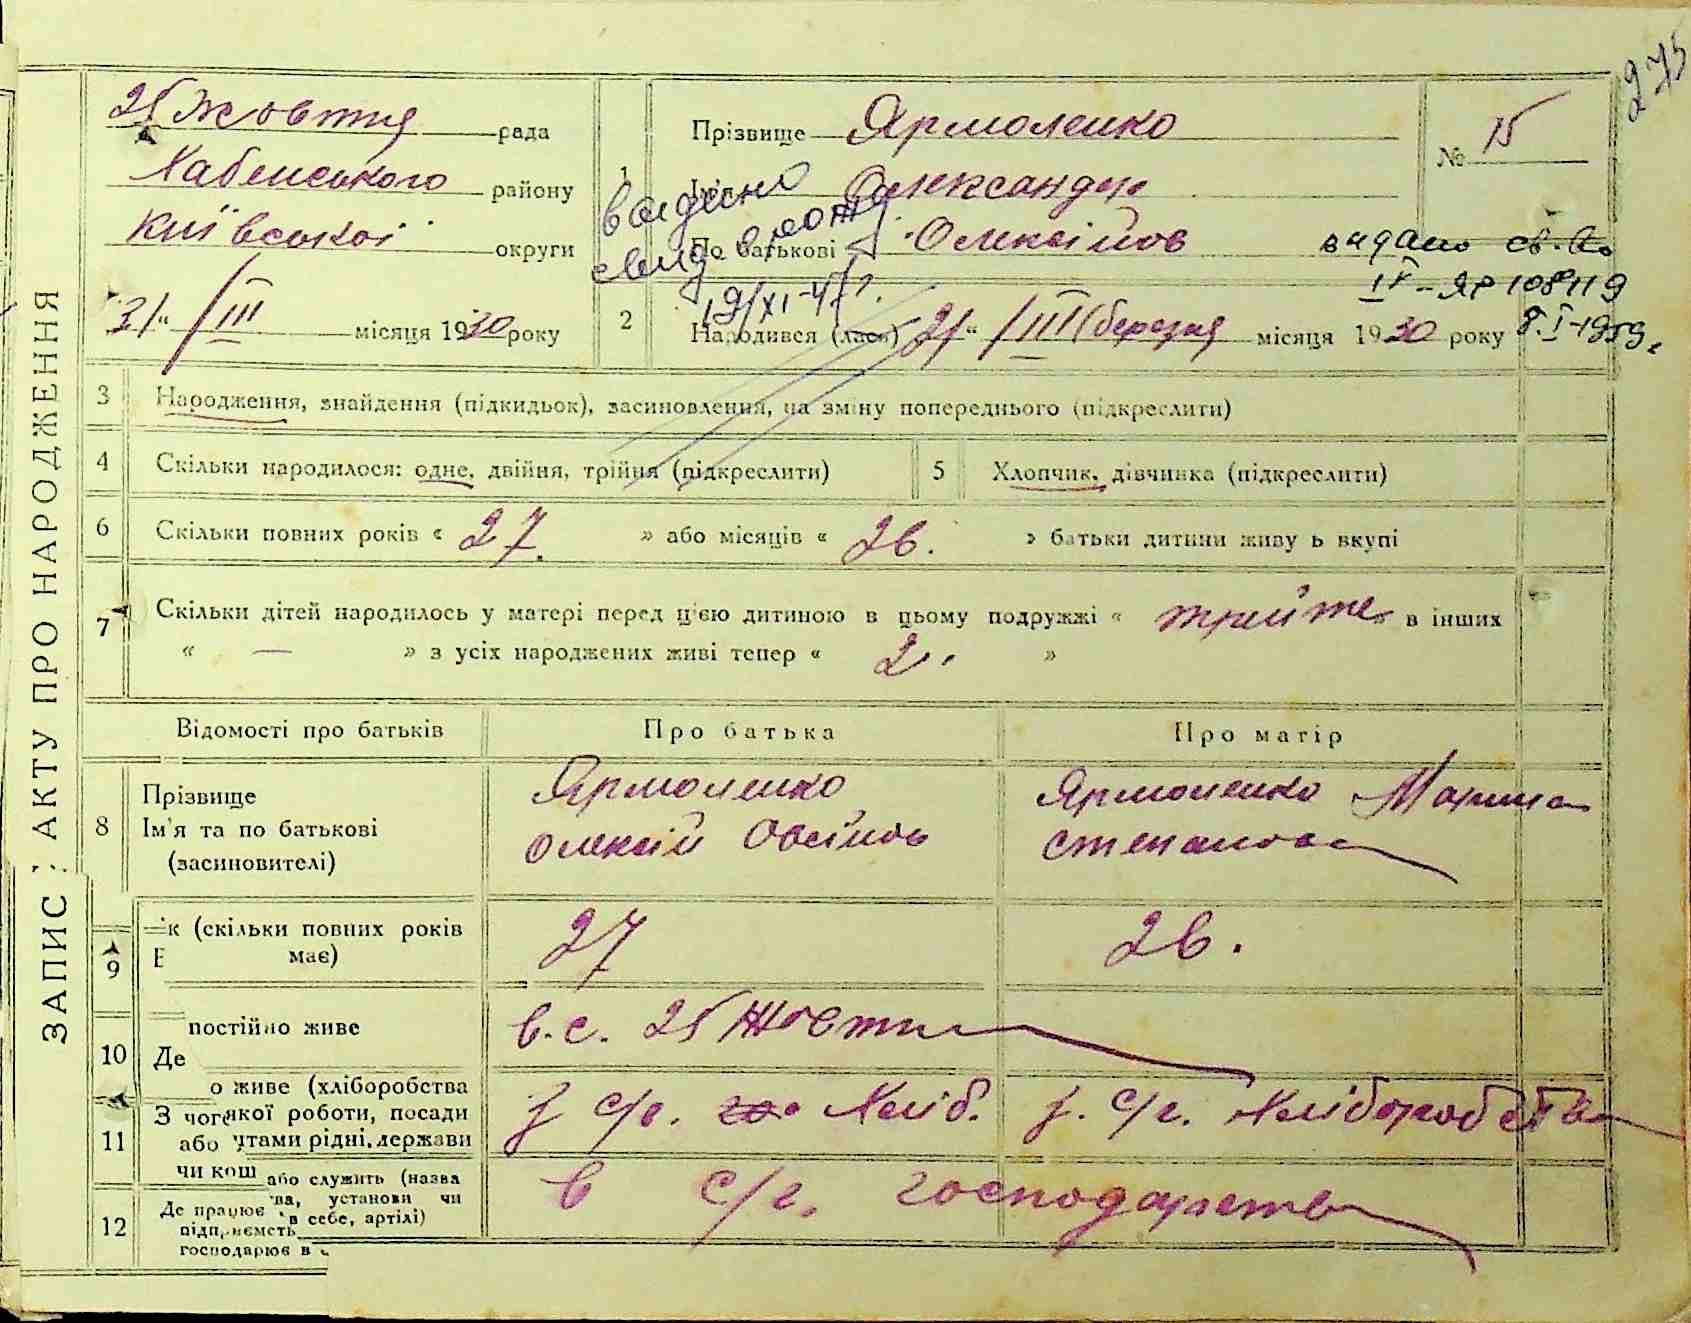 275
ЗАПИС АКТУ ПРО НАРОДЖЕННЯ
25 Жовтня рада
Хабенського району
Київської округи
31 " / III місяця 1930 року
1 Прізвище Ярмоленко
№ 15
Олександр
По батькові Олексійов
видано
видано св.
IV-ЯР 108119
8.I-1959
19/XI-4
2 Народився (лась) 21 " / III (березня місяця 1930 року
3 Народження, знайдення (підкидьок), засиновлення, на зміну попереднього (підкреслити)
4 Скільки народилося: одне, двійня, трійня (підкреслити)
5 Хлопчик, дівчинка (підкреслити)
6 Скільки повних років « 27. » або місяців « 26. » батьки дитини живу ь вкупі
7 Скільки дітей народилось у матері перед ц'єю дитиною в цьому подружжі « трейте » в інших
« — » з усіх народжених живі тепер « 2. »
Відомості про батьків Про батька Про матір
8 Прізвище
Ім'я та по батькові
(засиновителі)
Ярмоленко
Олексій Овсійов
Ярмоленко Марина
Степанова
9 к (скільки повних років
має)
27 26.
10 постійно живе
Де
в.с. 25 Жовтня
11 о живе (хліборобства
З чог якої роботи, посади
або чтами рідні, держави
чи кош
з с/г. хліб. з. с/г. хліборобства
12 або служить (назва
ва, установи чи
Де працює в себе, артілі)
підприємсть
господарює в
в с/г. господарстві